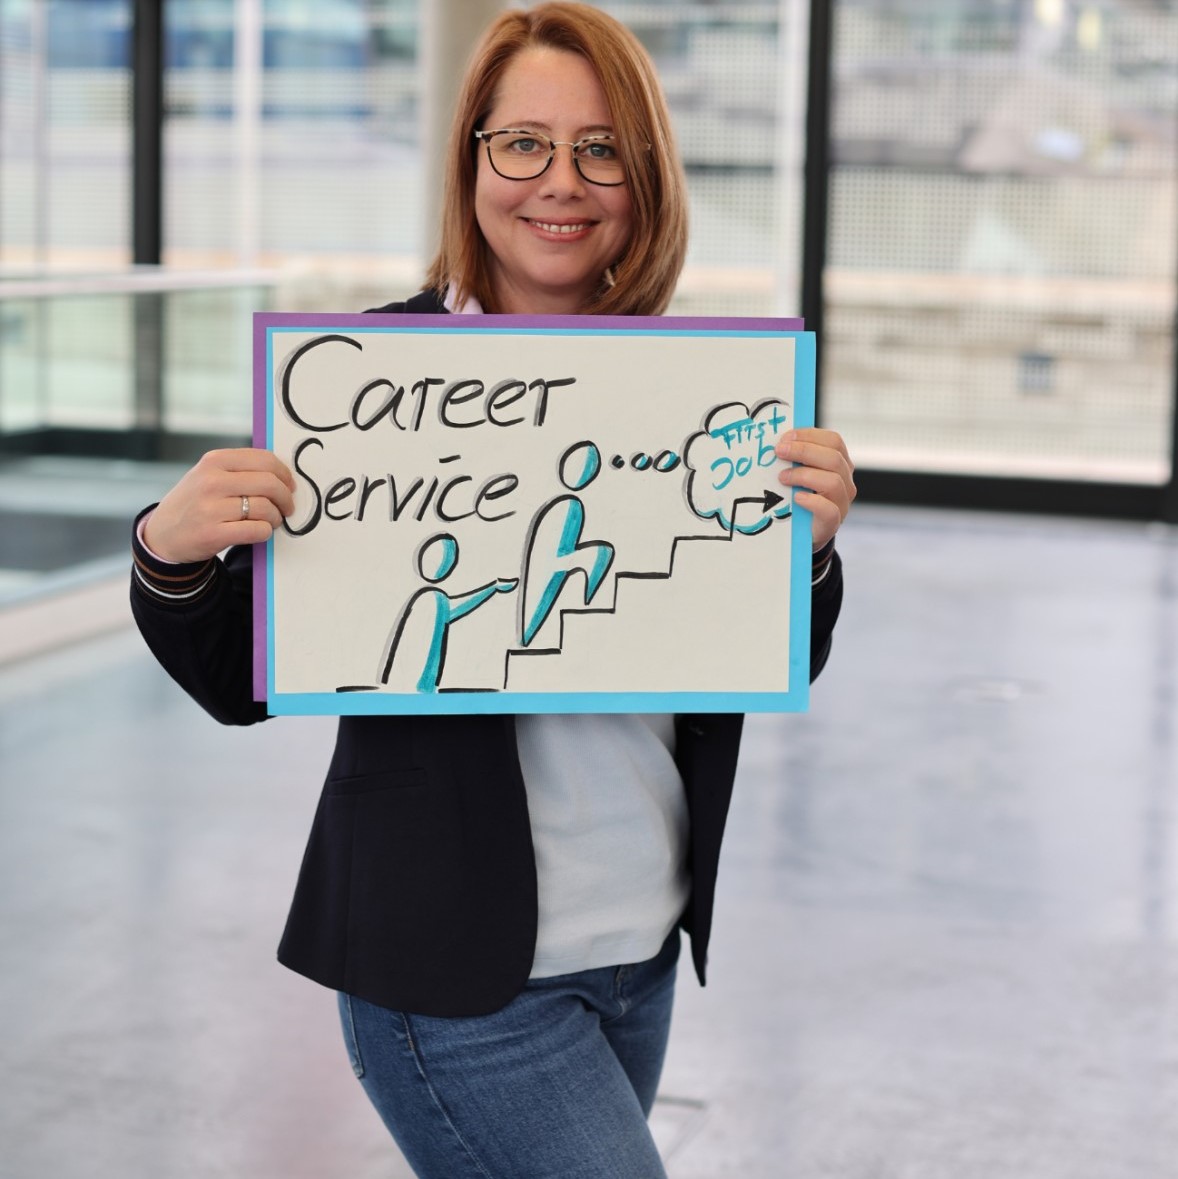 Career
Service
First
Job